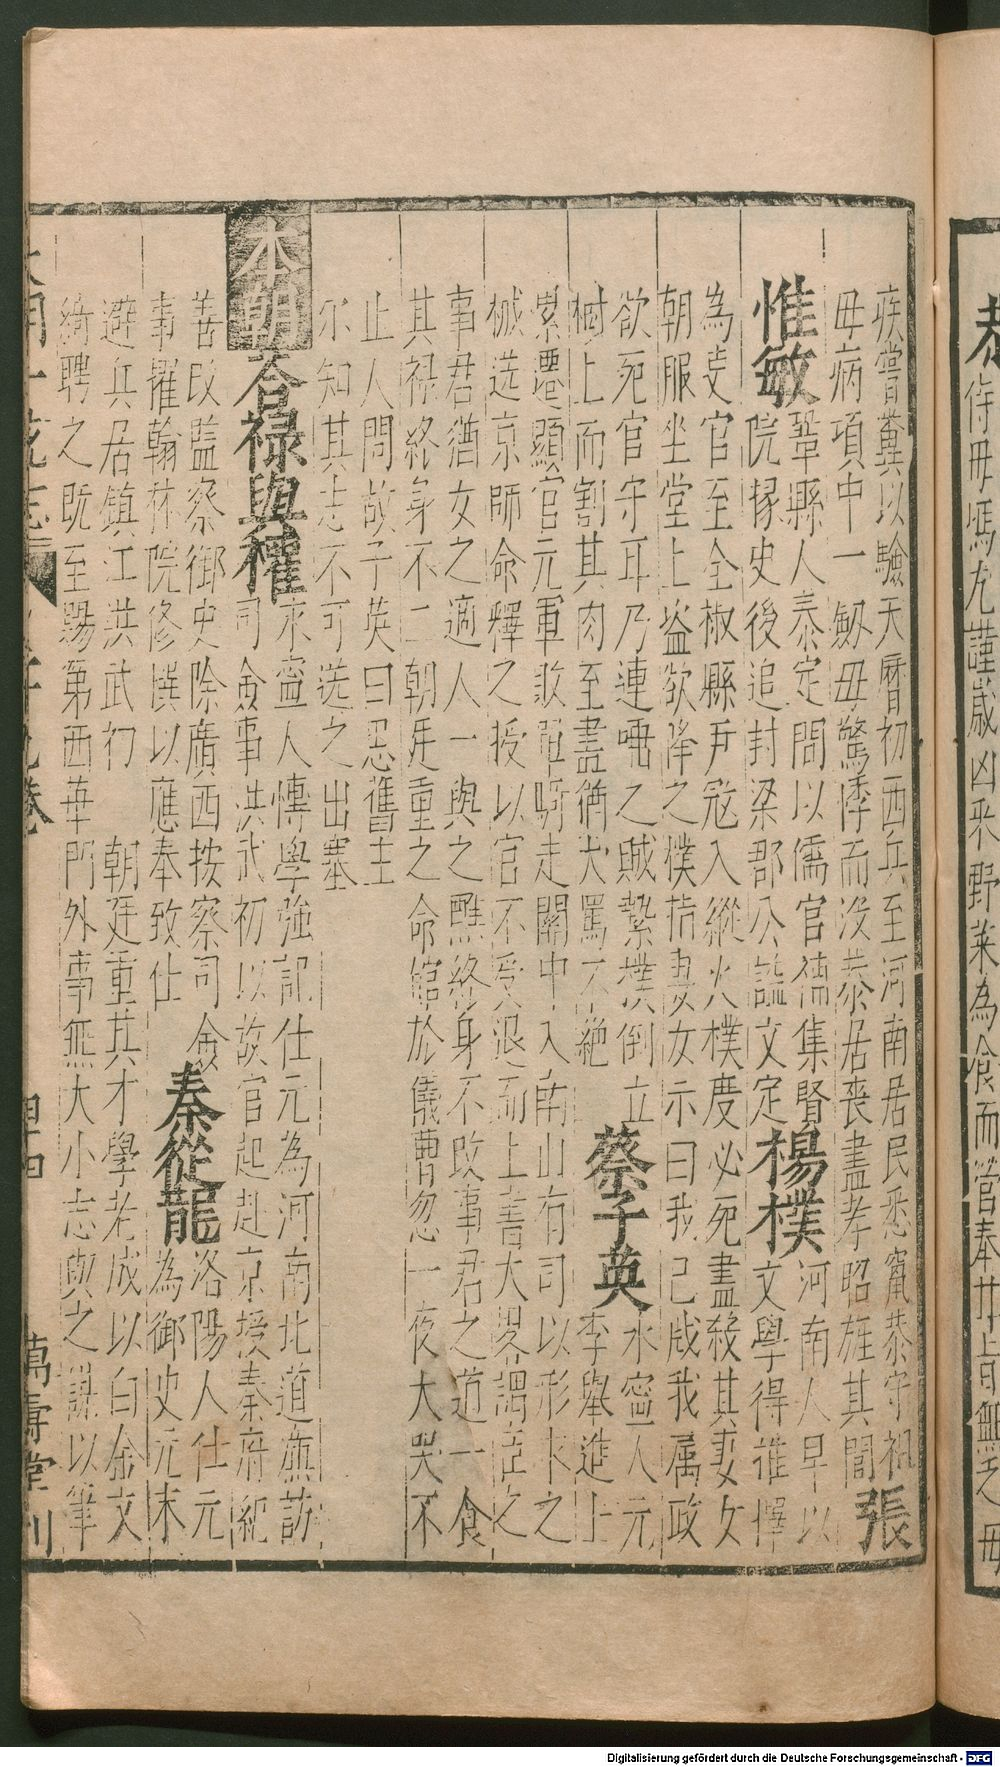 恭
侍母馮尤謹歲凶采野菜為食而營奉甘旨無乏母
疾嘗糞以驗天曆初西兵至河南居民悉竄恭守視
母病項中一劒毋驚悸而没恭居喪盡孝昭旌其閭
張惟敏
鞏縣人泰定間以儒官儒集賢
院掾史後追封梁郡公謚文定
楊樸
河南人早以
文學得推擇
為吏官至全椒縣尹冦入縱火樸度必死盡殺其妻女
朝服坐堂上盜欲降之樸指妻女示曰我已戕我属政
欲死官守耳乃連唾之賊縶樸倒立
樹上而割其肉至盡猶大罵不絶
蔡子英
永寧人元
李舉進上
累遷顯官元軍敗單騎走關中入南山有司以形求之
械送京師命釋之授以官不受退而上書大畧謂臣之
事君猶女之適人一與之醮終身不改事君之道一食
其禄終身不二朝廷重之命館於儀曹忽一夜大哭不
止人問故子英曰思舊主
尔知其志不可送之出塞
本朝
荅禄與權
永寧人愽學強記仕元為河南北道亷訪
司僉事洪武初以故官起赴京授秦府紀
善改監察御史除廣西按察司僉
事擢翰林院修撰以應奉致仕
秦從龍
洛陽人仕元
為御史元末
避兵居鎮江洪武初 朝廷重其才學老成以白金文
綺聘之既至賜第西華門外事無大小志與之謀以筆
大明一統志
卷
四十四
萬壽堂刊
Digitalisierung gefördert durch die Deutsche Forschungsgemeinschaft - DFG